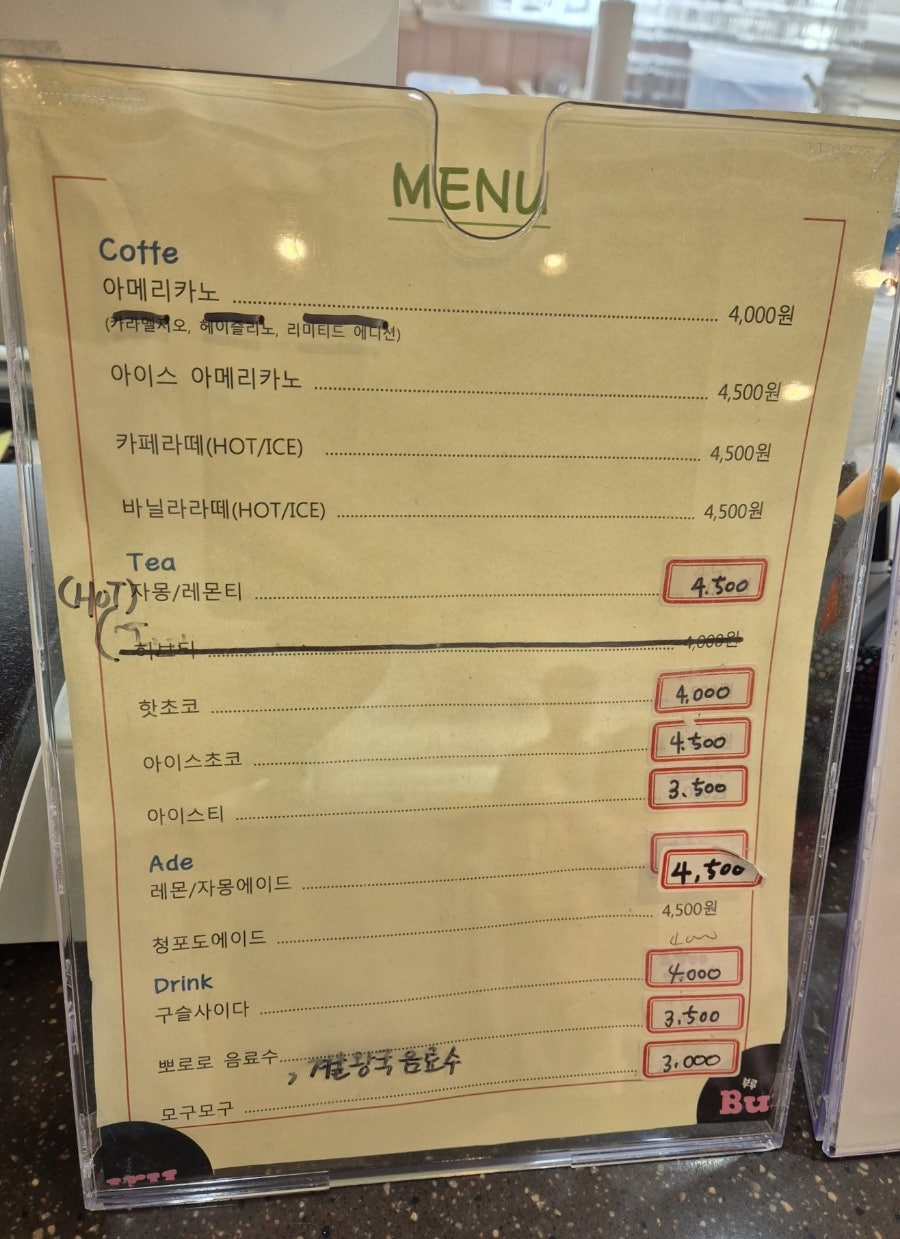 MENU
Coffe
아메리카노 4,000원
(카라멜치오, 헤이즐리노, 리미티드 에디션)
아이스 아메리카노 4,500원
카페라떼(HOT/ICE) 4,500원
바닐라라떼(HOT/ICE) 4,500원
Tea
(HOT) 자몽/레몬티 4.500
허브티 4,000원
핫초코 4,000
아이스초코 4.500
아이스티 3.500
Ade
레몬/자몽에이드 4,500
청포도에이드 4,500원
Drink
구슬사이다 4.000
뽀로로 음료수, 겨울왕국음료수 3.500
모구모구 3.000
부루
Bu